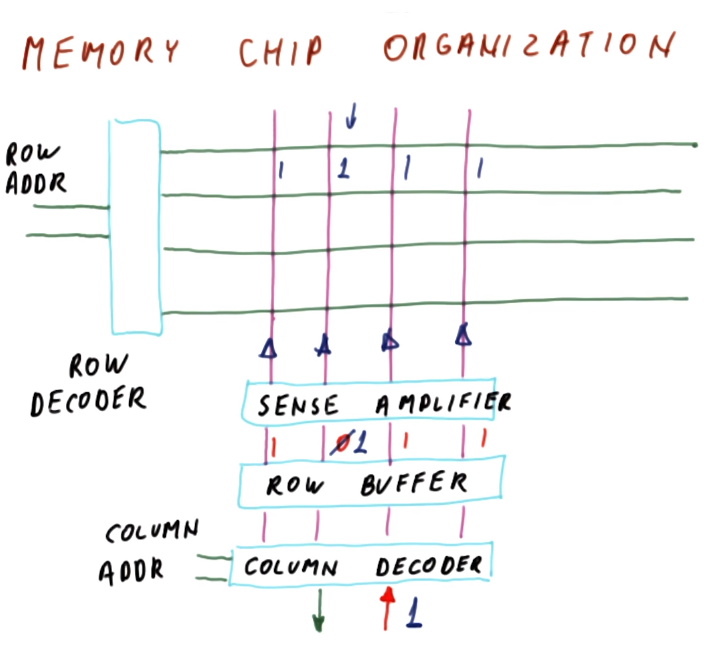 MEMORY CHIP ORGANIZATION
ROW
ADDR
1 1 1 1
ROW
DECODER
SENSE AMPLIFIER
1 0 1 1 1
ROW BUFFER
COLUMN
ADDR
COLUMN DECODER
1